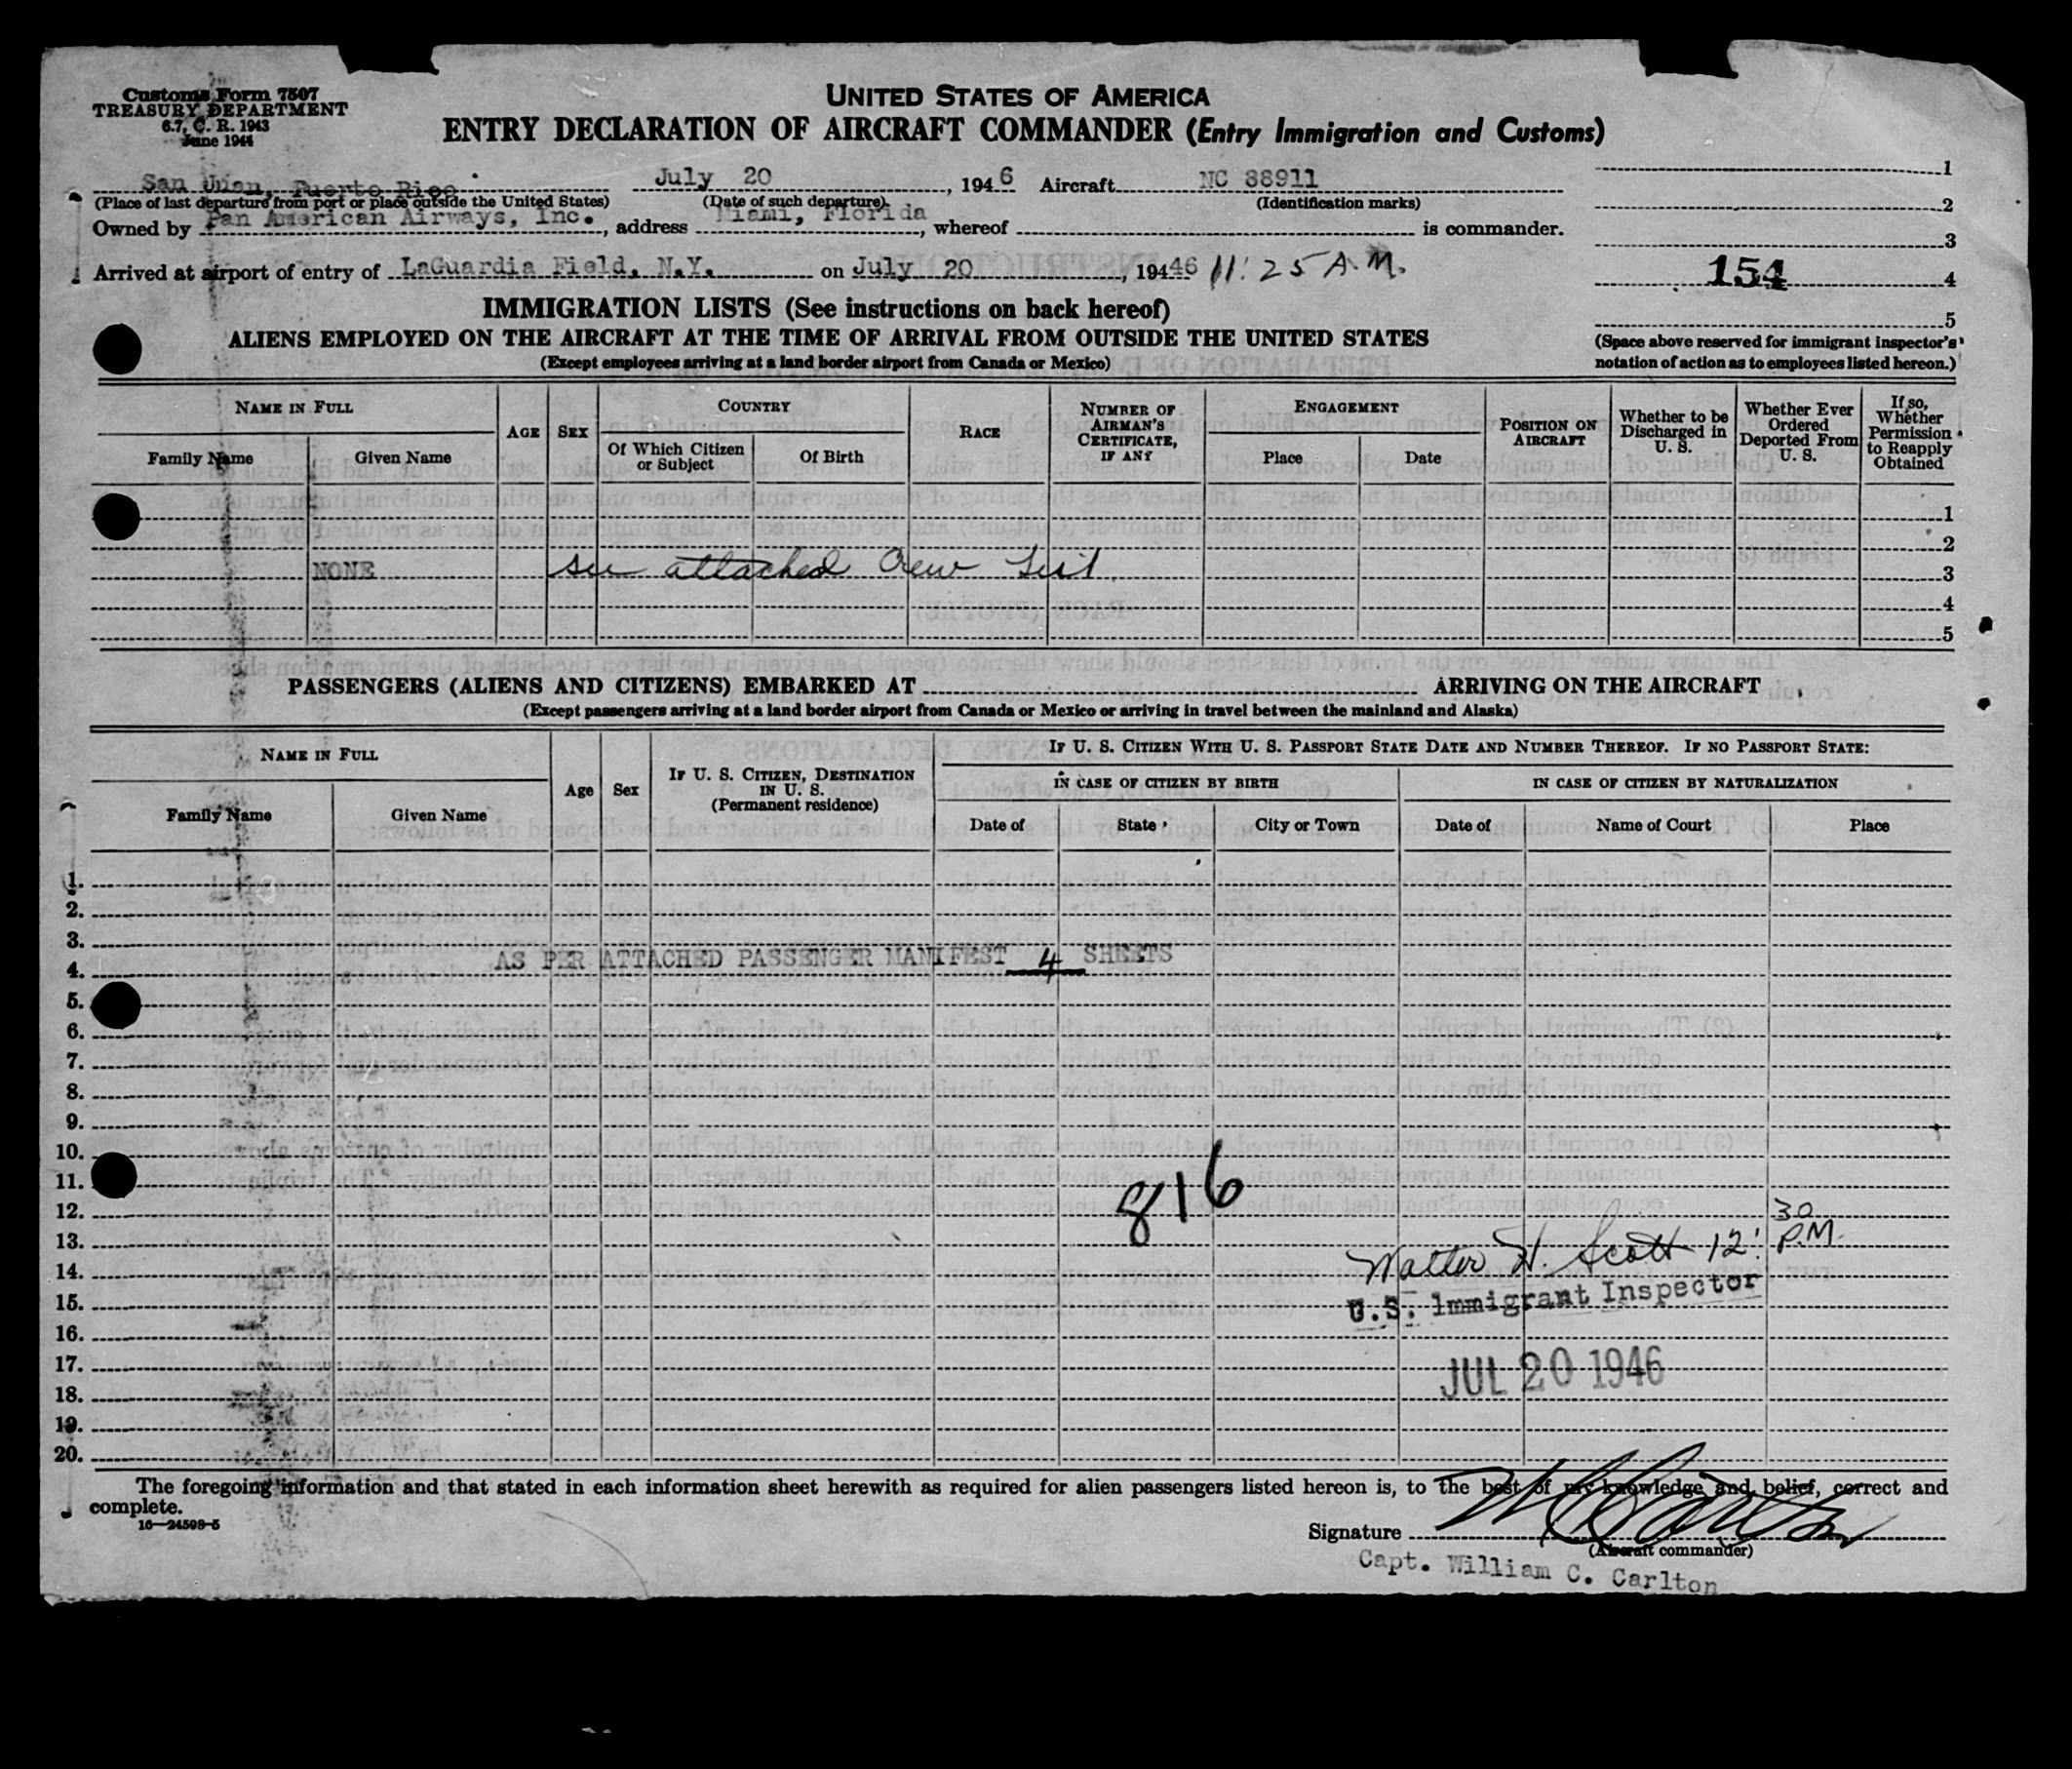 Customs Form 7507
TREASURY DEPARTMENT
6.7, C. R. 1943
June 1944
UNITED STATES OF AMERICA
ENTRY DECLARATION OF AIRCRAFT COMMANDER (Entry Immigration and Customs)
San Juan, Puerto Rico July 20, 1946 Aircraft NC 88911
(Place of last departure from port or place outside the United States) (Date of such departure) (Identification marks)
Owned by Pan American Airways, Inc., address Miami, Florida, whereof is commander.
Arrived at airport of entry of LaGuardia Field, N.Y. on July 20, 19446 11:25 A.M.
1
2
3
154 4
5
(Space above reserved for immigrant inspector's
notation of action as to employees listed hereon.)
IMMIGRATION LISTS (See instructions on back hereof)
ALIENS EMPLOYED ON THE AIRCRAFT AT THE TIME OF ARRIVAL FROM OUTSIDE THE UNITED STATES
(Except employees arriving at a land border airport from Canada or Mexico)
NAME IN FULL
Family Name Given Name
AGE
SEX
COUNTRY
Of Which Citizen or Subject
Of Birth
RACE
NUMBER OF AIRMAN'S CERTIFICATE, IF ANY
ENGAGEMENT
Place Date
POSITION ON AIRCRAFT
Whether to be Discharged in U. S.
Whether Ever Ordered Deported From U. S.
If so, Whether Permission to Reapply Obtained
1
2
NONE see attached Crew List. 3
4
5
PASSENGERS (ALIENS AND CITIZENS) EMBARKED AT ARRIVING ON THE AIRCRAFT
(Except passengers arriving at a land border airport from Canada or Mexico or arriving in travel between the mainland and Alaska)
NAME IN FULL
Family Name Given Name
Age
Sex
IF U. S. CITIZEN, DESTINATION IN U. S. (Permanent residence)
IF U. S. CITIZEN WITH U. S. PASSPORT STATE DATE AND NUMBER THEREOF. IF NO PASSPORT STATE:
IN CASE OF CITIZEN BY BIRTH IN CASE OF CITIZEN BY NATURALIZATION
Date of State City or Town Date of Name of Court Place
1.
2.
3.
AS PER ATTACHED PASSENGER MANIFEST 4 SHEETS
4.
5.
6.
7.
8.
9.
10.
11.
816
12.
13.
Walter H. Scott 12:30 P.M.
14.
U.S. Immigrant Inspector
15.
16.
17.
JUL 20 1946
18.
19.
20.
The foregoing information and that stated in each information sheet herewith as required for alien passengers listed hereon is, to the best of my knowledge and belief, correct and
complete.
16—24598-5
Signature W C Carlton
(Aircraft commander)
Capt. William C. Carlton